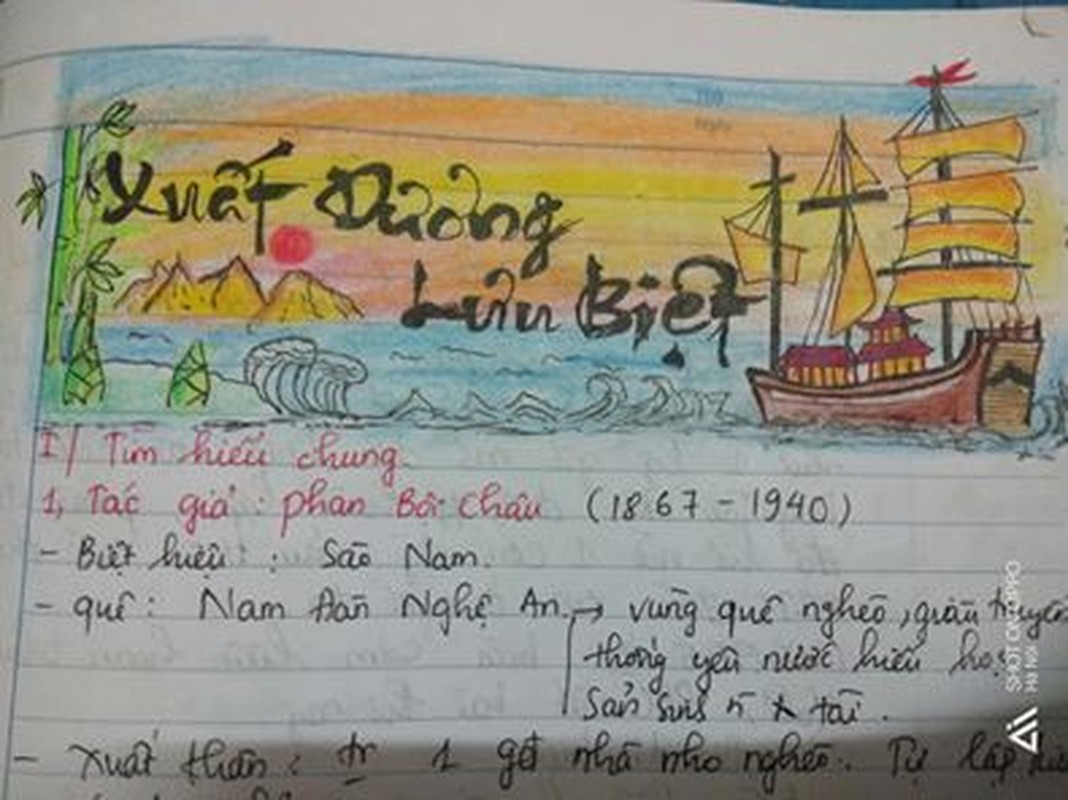 Xuất Dương
Lưu Biệt
I/ Tìm hiểu chung
1, Tác giả : phan Bội Châu (1867 - 1940)
- Biệt hiệu : Sào Nam.
- quê : Nam Đàn Nghệ An. → vùng quê nghèo, giàu truyền
thống yêu nước hiếu học
sản sinh n tài.
- Xuất thân : tr 1 gđ nhà nho nghèo. Tự lập
SHOT ON OPPO
Hà Nội